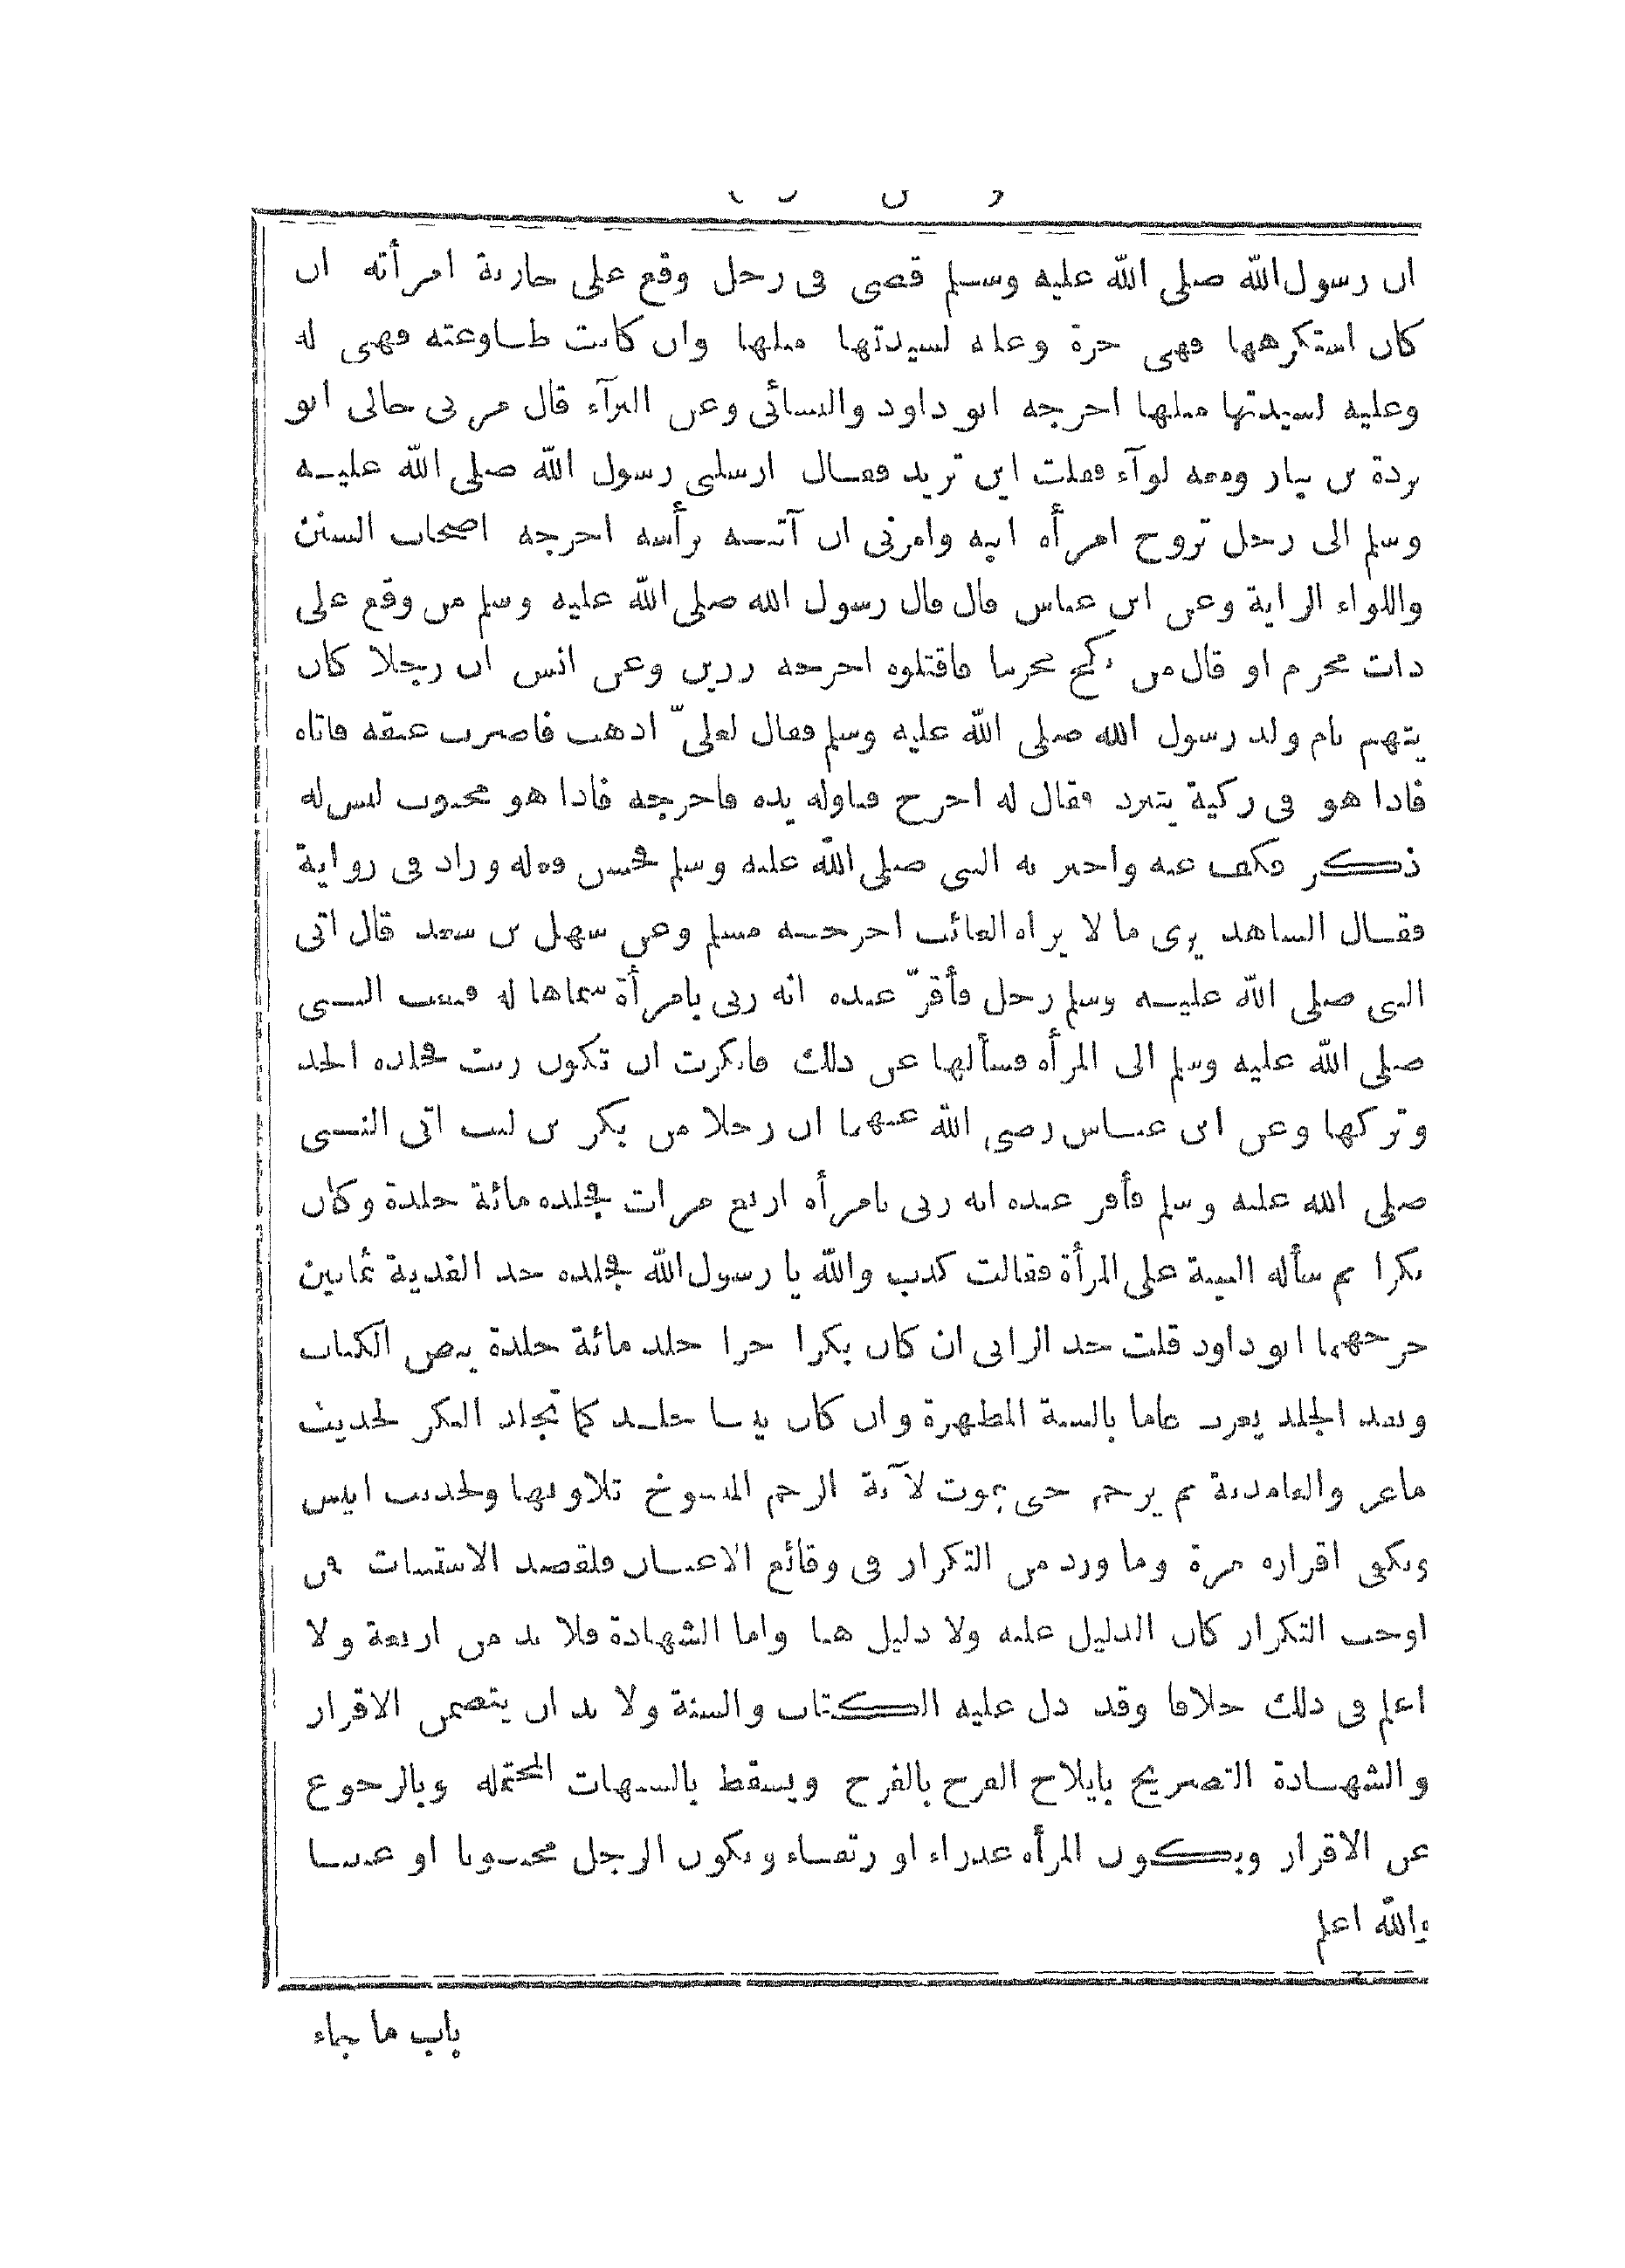 ان رسول الله صلى الله عليه وسلم قضى في رجل وقع على جارية امرأته ان
كان استكرهها فهي حرة وعليه لسيدتها مثلها وان كانت طاوعته فهي له
وعليه لسيدتها مثلها اخرجه ابو داود والنسائي وعن البرآء قال مر بي خالي ابو
بردة بن نيار ومعه لوآء فقلت اين تريد فقال ارسلني رسول الله صلى الله عليه
وسلم الى رجل تزوج امرأة ابيه وامرني ان آتيه برأسه اخرجه اصحاب السنن
واللواء الراية وعن ابن عباس قال قال رسول الله صلى الله عليه وسلم من وقع على
ذات محرم او قال من نكح محرما فاقتلوه اخرجه رزين وعن انس ان رجلا كان
يتهم بام ولد رسول الله صلى الله عليه وسلم فقال لعليّ اذهب فاضرب عنقه فاتاه
فاذا هو في ركية يتبرد فقال له اخرج فناوله يده فاخرجه فاذا هو مجبوب ليس له
ذكر فكف عنه واخبر به النبي صلى الله عليه وسلم فحسن فعله وزاد في رواية
فقال الشاهد يرى ما لا يراه الغائب اخرجه مسلم وعن سهل بن سعد قال اتى
النبي صلى الله عليه وسلم رجل فأقرّ عنده انه زنى بامرأة سماها له فبعث النبي
صلى الله عليه وسلم الى المرأة فسألها عن ذلك فانكرت ان تكون زنت فجلده الحد
وتركها وعن ابن عباس رضي الله عنهما ان رجلا من بكر بن ليث اتى النبي
صلى الله عليه وسلم فأقر عنده انه زنى بامرأة اربع مرات فجلده مائة جلدة وكان
بكرا ثم سأله البينة على المرأة فقالت كذب والله يا رسول الله فجلده حد الفدية ثمانين
خرجهما ابو داود قلت حد الزاني ان كان بكرا حرا جلد مائة جلدة بنص الكتاب
وبعد الجلد يغرب عاما بالسنة المطهرة وان كان ثيبا جلد كما تجلد البكر لحديث
ماعز والغامدية ثم يرجم حتى يموت لآية الرجم المنسوخ تلاوتها ولحديث انيس
ويكفي اقراره مرة وما ورد من التكرار في وقائع الاعيان فلقصد الاستثبات فمن
اوجب التكرار كان الدليل عليه ولا دليل هنا واما الشهادة فلا بد من اربعة ولا
اعلم في ذلك خلافا وقد دل عليه الكتاب والسنة ولا بد ان يتضمن الاقرار
والشهادة التصريح بايلاج الفرج بالفرج ويسقط بالشبهات المحتملة وبالرجوع
عن الاقرار وبكون المرأة عذراء او رتقاء وبكون الرجل مجبوبا او عنينا
والله اعلم
باب ما جاء